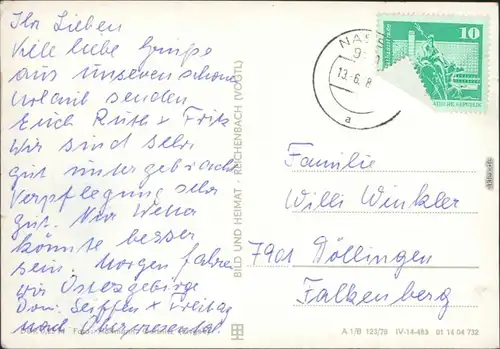 Ihr Lieben
Viele liebe Grüße
aus unseren schönen
Urlaub senden
Euch Ruth + Fritz
Wir sind sehr
gut untergebracht
Verpflegung sehr
gut. Nur Wetter
könnte besser
sein. Morgen fahren
wir Osterzgebirge
Don. Seiffen + Freitag
nach Oberwiesental
BILD UND HEIMAT · REICHENBACH (VOGTL)
NAS
9
13.-6.-8
a
10
Familie
Willi Winkler
7901 Döllingen
Falkenberg
A 1/B 123/78 IV-14-483 01 14 04 732